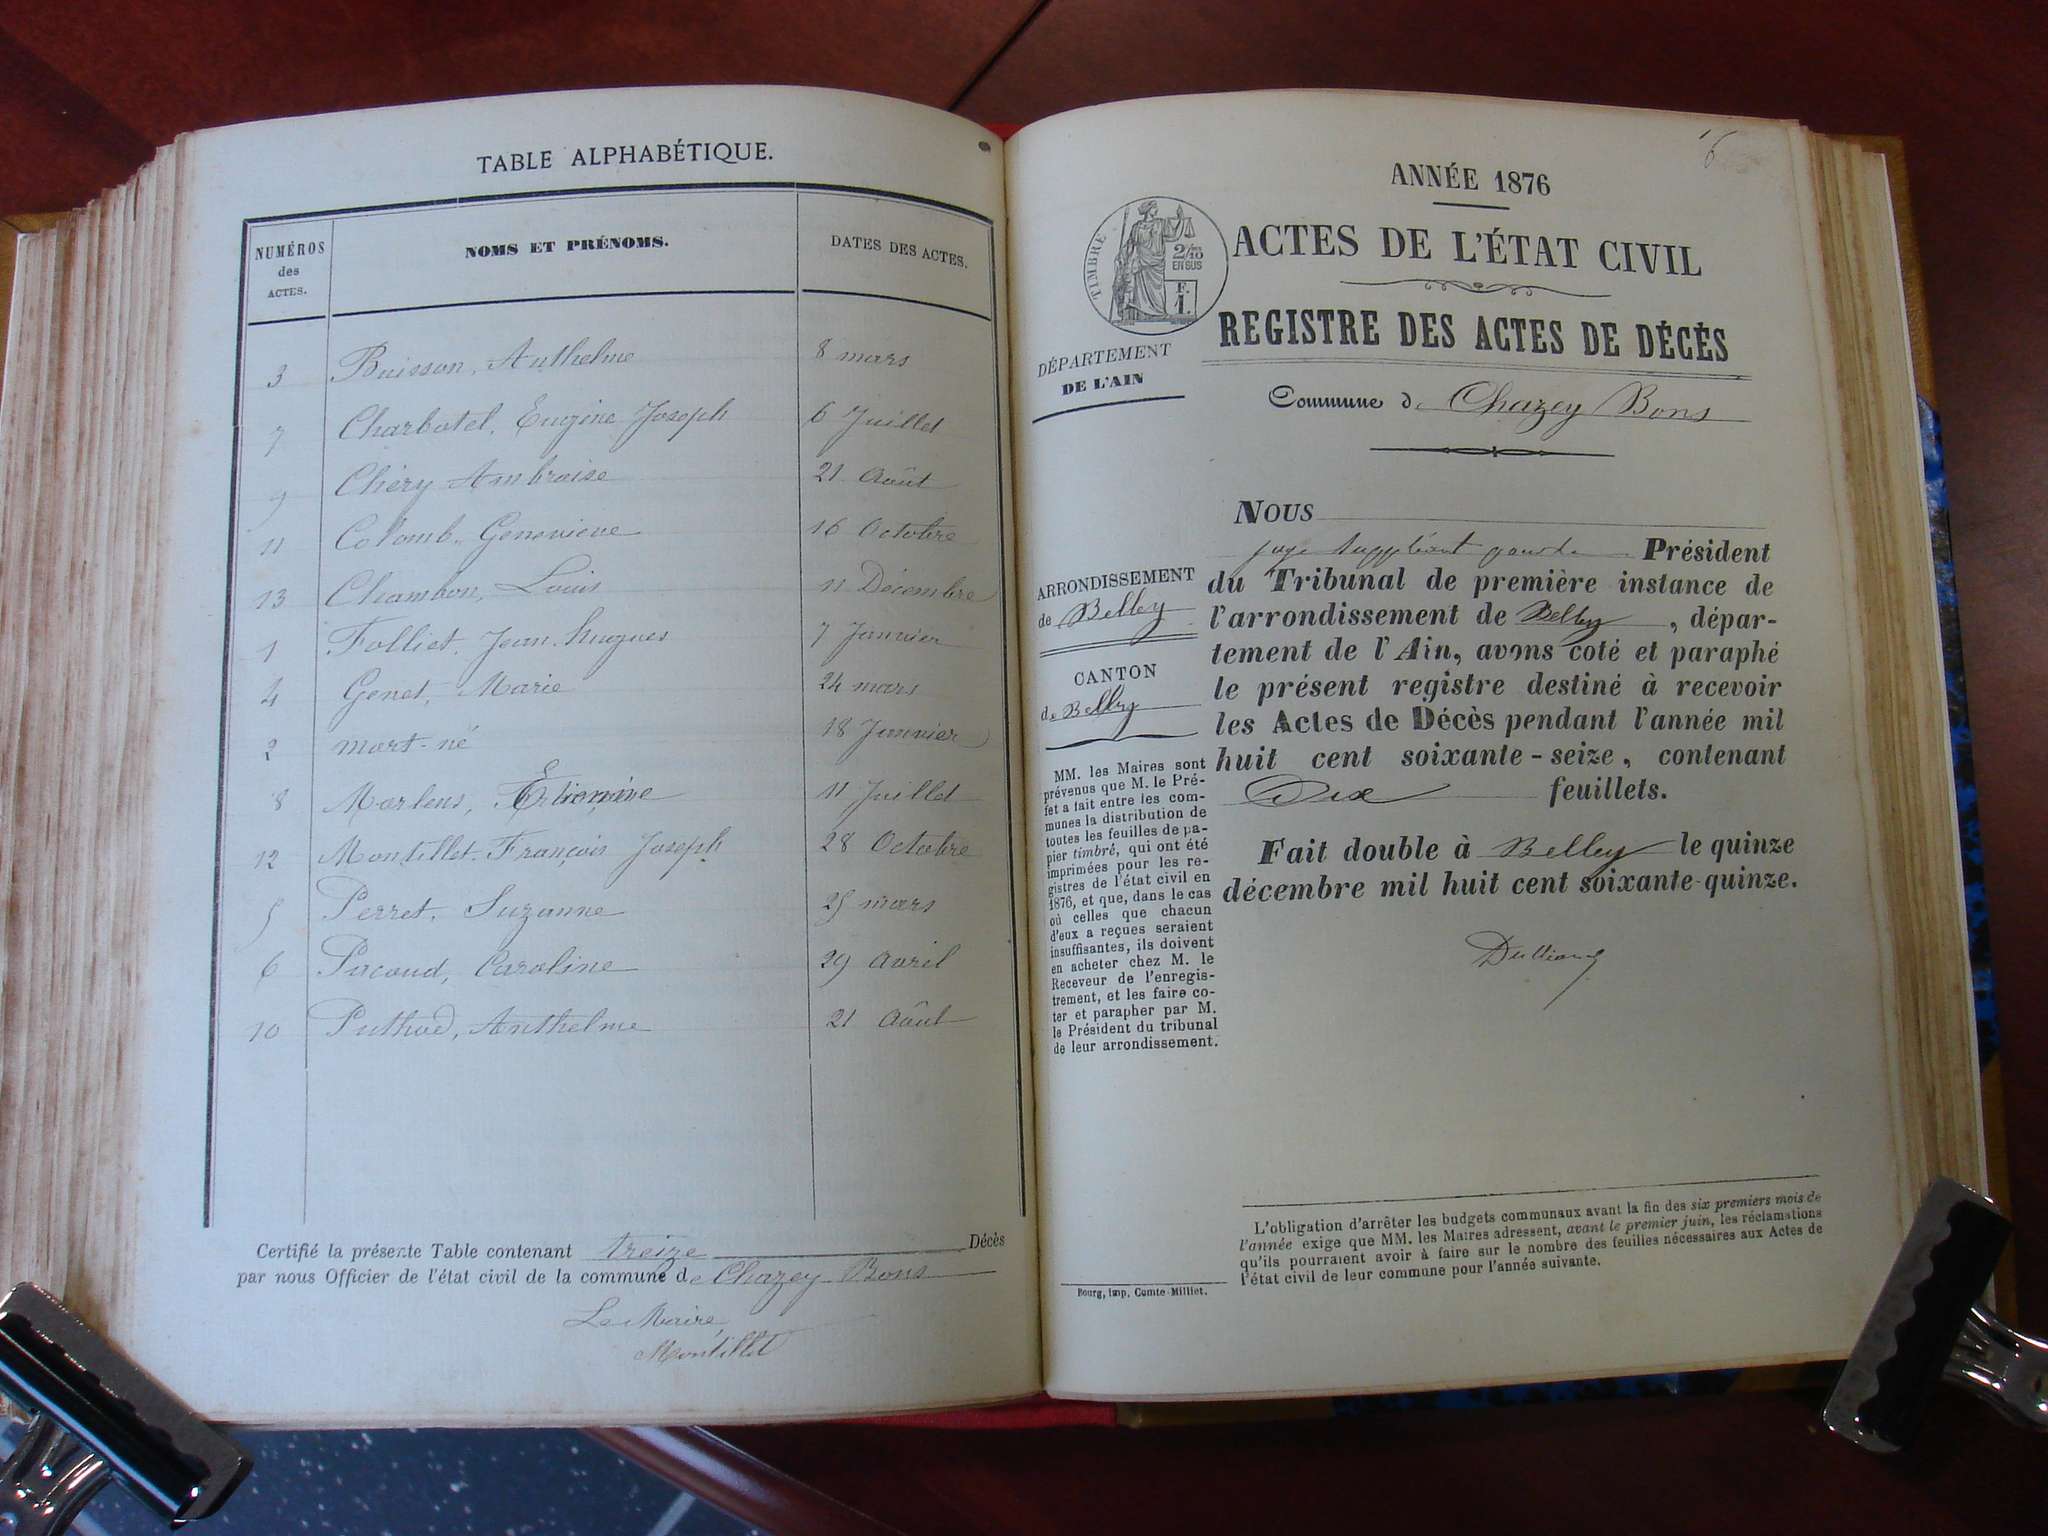 TABLE ALPHABÉTIQUE.
NUMÉROS des ACTES. NOMS ET PRÉNOMS. DATES DES ACTES.
3 Buisson, Anthelme 8 mars
7 Charbotel, Eugène Joseph 6 Juillet
9 Chéry Ambroise 21 Août
11 Colomb, Genevieve 16 Octobre
13 Chambon, Louis 11 Décembre
1 Folliet, Jean hugues 7 Janvier
4 Genet, Marie 24 mars
2 mort-né 18 Janvier
8 Martens, 11 Juillet
12 Montillet François Joseph 28 Octobre
5 Perret, Suzanne 25 mars
6 Pacoud, Caroline 29 avril
10 Puthod, Anthelme 21 Août
Certifié la présente Table contenant treize Décès
par nous Officier de l'état civil de la commune de Chazey Bons
Le Maire
Montillet
6
ANNÉE 1876
ACTES DE L'ÉTAT CIVIL
REGISTRE DES ACTES DE DÉCÈS
Commune de Chazey Bons
TIMBRE
2/10
EN SUS
F.
1.
DÉPARTEMENT
DE L'AIN
ARRONDISSEMENT
de Belley
CANTON
de Belley
MM. les Maires sont
prévenus que M. le Pré-
fet a fait entre les com-
munes la distribution de
toutes les feuilles de pa-
pier timbré, qui ont été
imprimées pour les re-
gistres de l'état civil en
1876, et que, dans le cas
où celles que chacun
d'eux a reçues seraient
insuffisantes, ils doivent
en acheter chez M. le
Receveur de l'enregis-
trement, et les faire co-
ter et parapher par M.
le Président du tribunal
de leur arrondissement.
NOUS
juge suppléant pour le Président
du Tribunal de première instance de
l'arrondissement de Belley, dépar-
tement de l'Ain, avons coté et paraphé
le présent registre destiné à recevoir
les Actes de Décès pendant l'année mil
huit cent soixante-seize, contenant
Dix feuillets.
Fait double à Belley le quinze
décembre mil huit cent soixante-quinze.
L'obligation d'arrêter les budgets communaux avant la fin des six premiers mois de
l'année exige que MM. les Maires adressent, avant le premier juin, les réclamations
qu'ils pourraient avoir à faire sur le nombre des feuilles nécessaires aux Actes de
l'état civil de leur commune pour l'année suivante.
Bourg, imp. Comte-Milliet.